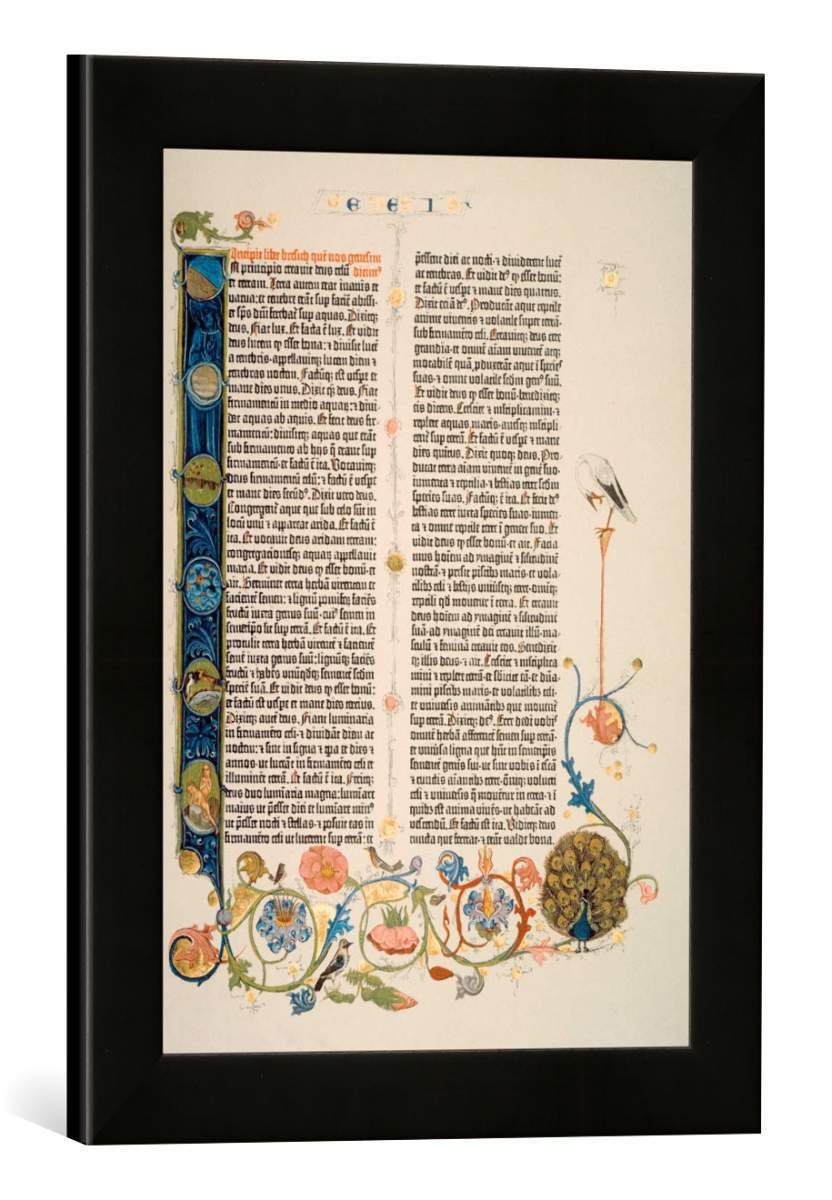 GENESIS
Incipit liber bresich quē nos genesim
In principio creavit deus celū dicimꝰ
et terram. Terra autem erat inanis et
vacua: et tenebre erāt sup faciē abissi:
et spūs dñi ferebat sup aquas. Dixitqꝫ
deus. Fiat lux. Et facta ē lux. Et vidit
deus lucem ꝙ esset bona: et divisit lucē
a tenebris·appellavitqꝫ lucem diem et
tenebras noctem. Factūqꝫ est vespe et
mane dies unus. Dixit qꝫ deus. Fiat
firmamentū in medio aquaꝝ: et divi-
dat aquas ab aquis. Et fecit deus fir-
mamentū: divisitqꝫ aquas que erāt
sub firmamento ab hijs ꝙ erant sup
firmamentū: et factū ē ita. Vocavitqꝫ
deus firmamentū celū: et factū ē vespe
et mane dies secūdꝰ. Dixit vero deus.
Congregent aque que sub celo sūt in
locū unū et appareat arida. Et factū ē
ita. Et vocavit deus aridam terram:
congregacionesqꝫ aquaꝝ appellavit
maria. Et vidit deus ꝙ esset bonū·et
ait. Germinet terra herbā virentem et
facientē semen: et lignū pomifeꝝ faciēs
fructū iuxta genus suū·cuiꝰ semen in
semetipso sit sup terrā. Et factū ē ita. Et
protulit terra herbā virentē et facientē
semē iuxta genus suū: lignūqꝫ faciēs
fructū et habēs unūqdqꝫ sementē scdm
speciē suā. Et vidit deus ꝙ esset bonū:
et factū est vespe et mane dies tercius.
Dixitqꝫ autē deus. Fiant luminaria
in firmamēto celi·et dividāt diem ac
noctem: et sint in signa et tpa et dies et
annos·ut luceāt in firmamēto celi et
illuminēt terrā. Et factū ē ita. Fecitqꝫ
deus duo luminaria magna: lumiare
maius ut pesset diei et lumiare minꝰ
ut pesset nocti et stellas·et posuit eas in
firmamēto celi ut lucerent sup terrā: et
pessent diei ac nocti·et dividerent lucē
ac tenebras. Et vidit dꝰ ꝙ esset bonū:
et factū ē vespe et mane dies quartus.
Dixit eciā dꝰ. Producant aque reptile
anime viventis et volatile super terrā·
sub firmamēto celi. Creavitqꝫ deus cete
grandia·et omnē aīam viventē atqꝫ
motabilē quā pduxerāt aque ī species
suas·et omne volatile scdm genꝰ suū.
Et vidit deus ꝙ esset bonū·benedixitqꝫ
eis dicens. Crescite et mltiplicamini·et
replete aquas maris·avesqꝫ mltipli-
cent sup terrā. Et factū ē vespe et mane
dies quitus. Dixit quoqꝫ deus. Pro-
ducat terra aīam viventē in genē suo·
iumenta et reptilia·et bestias terre scdm
species suas. Factūqꝫ ē ita. Et fecit dꝰ
bestias terre iuxta species suas·iumen-
ta et omne reptile terre ī genere suo. Et
vidit deus ꝙ esset bonū·et ait. Facia-
mus hoīem ad ymaginē et silitudinē
nostrā·et presit piscibꝫ maris·et vola-
tilibꝫ celi et bestiis univseqꝫ terre·omniqꝫ
reptili qd movetur ī terra. Et creavit
deus hoīem ad ymaginē et silitudinē
suā·ad ymaginē dei creavit illū·ma-
sculū et feminā creavit eos. Benedixit-
qꝫ illis deus·et ait. Crescite et mltiplica-
mini et replete terrā·et sbicite eā·et dña-
mini piscibꝫ maris·et volatilibꝫ celi·
et univsis animātibꝫ que moventur
sup terrā. Dixitqꝫ dꝰ. Ecce dedi vobis
omnē herbā afferentē semen sup terrā·
et univsa ligna que hñt in semetipis
sementē genis sui·ut sint vobis ī escā
et cunctis aīantibꝫ terre·omniqꝫ volucri
celi et univsis ꝙ moventur in terra·et ī
quibꝫ est anima vivēs·ut habeāt ad
vescendū. Et factū est ita. Viditqꝫ deus
cuncta que fecerat·et erāt valde bona.